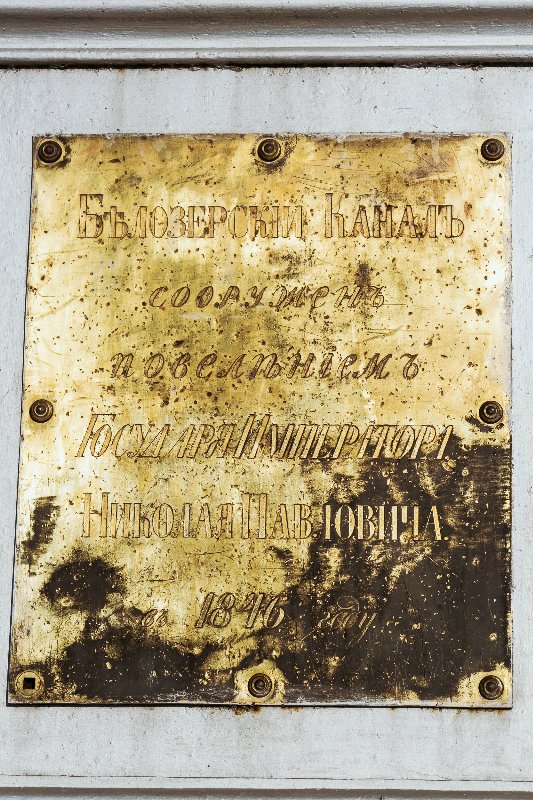 Бѣлозерскій Каналъ
сооруженъ
повелѣніемъ
Государя Императора
Николая Павловича.
въ 1846 году